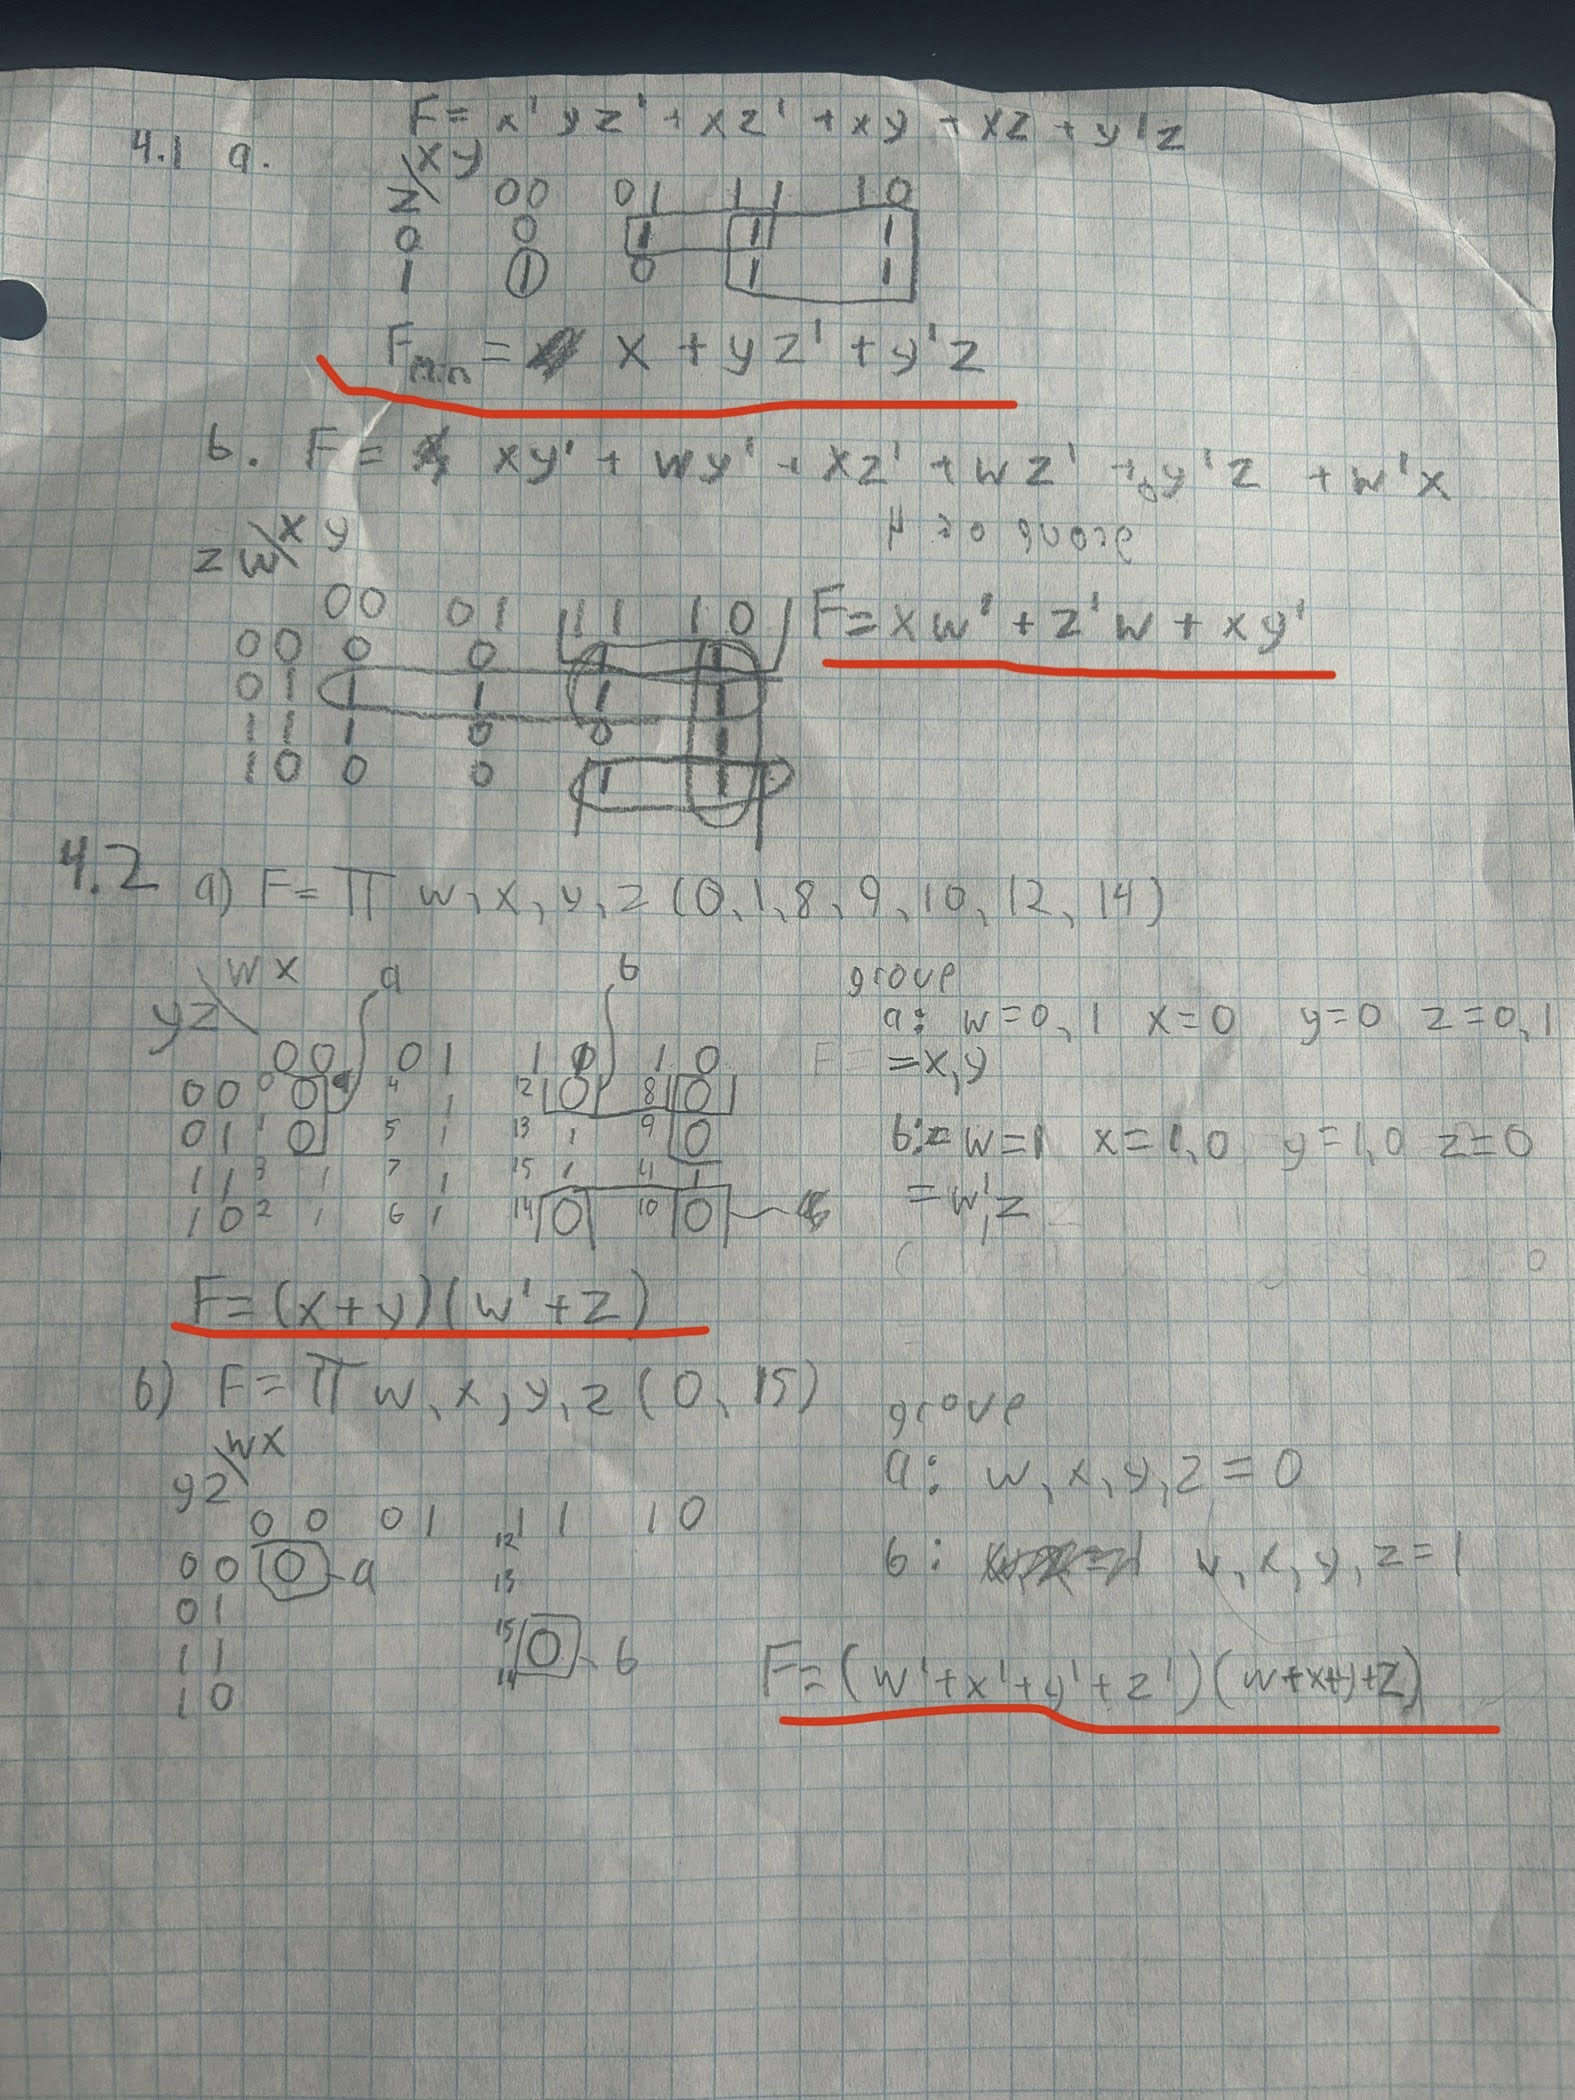 4.1 a. F = x'yz' + xz' + xy + xz + y'z
z\xy
00 01 11 10
0 0 1 1 1
1 1 0 1 1
F min = x + yz' + y'z
b. F = xy' + wy' + xz' + wz' + y'z + w'x
zw\xy
00 01 11 10
00 0 0 1 1
01 1 1 1 1
11 1 0 0 1
10 0 0 1 1
F = xw' + z'w + xy'
4.2 a) F = Π w, x, y, z (0, 1, 8, 9, 10, 12, 14)
yz\wx
a b
00 01 10 10
00 0 0 4 1 12 0 8 0
01 1 0 5 1 13 1 9 0
11 3 1 7 1 15 1 11 1
10 2 1 6 1 14 0 10 0
group
a: w=0,1 x=0 y=0 z=0,1
= x,y
b: = w=1 x=1,0 y=1,0 z=0
= w',z
F = (x+y)(w'+z)
b) F = Π w, x, y, z (0, 15)
yz\wx
00 01 11 10
00 0 a 12
01 13
11 15 0 b
10 14
group
a: w, x, y, z = 0
b: w, x, y, z = 1
F = (w'+x'+y'+z')(w+x+y+z)